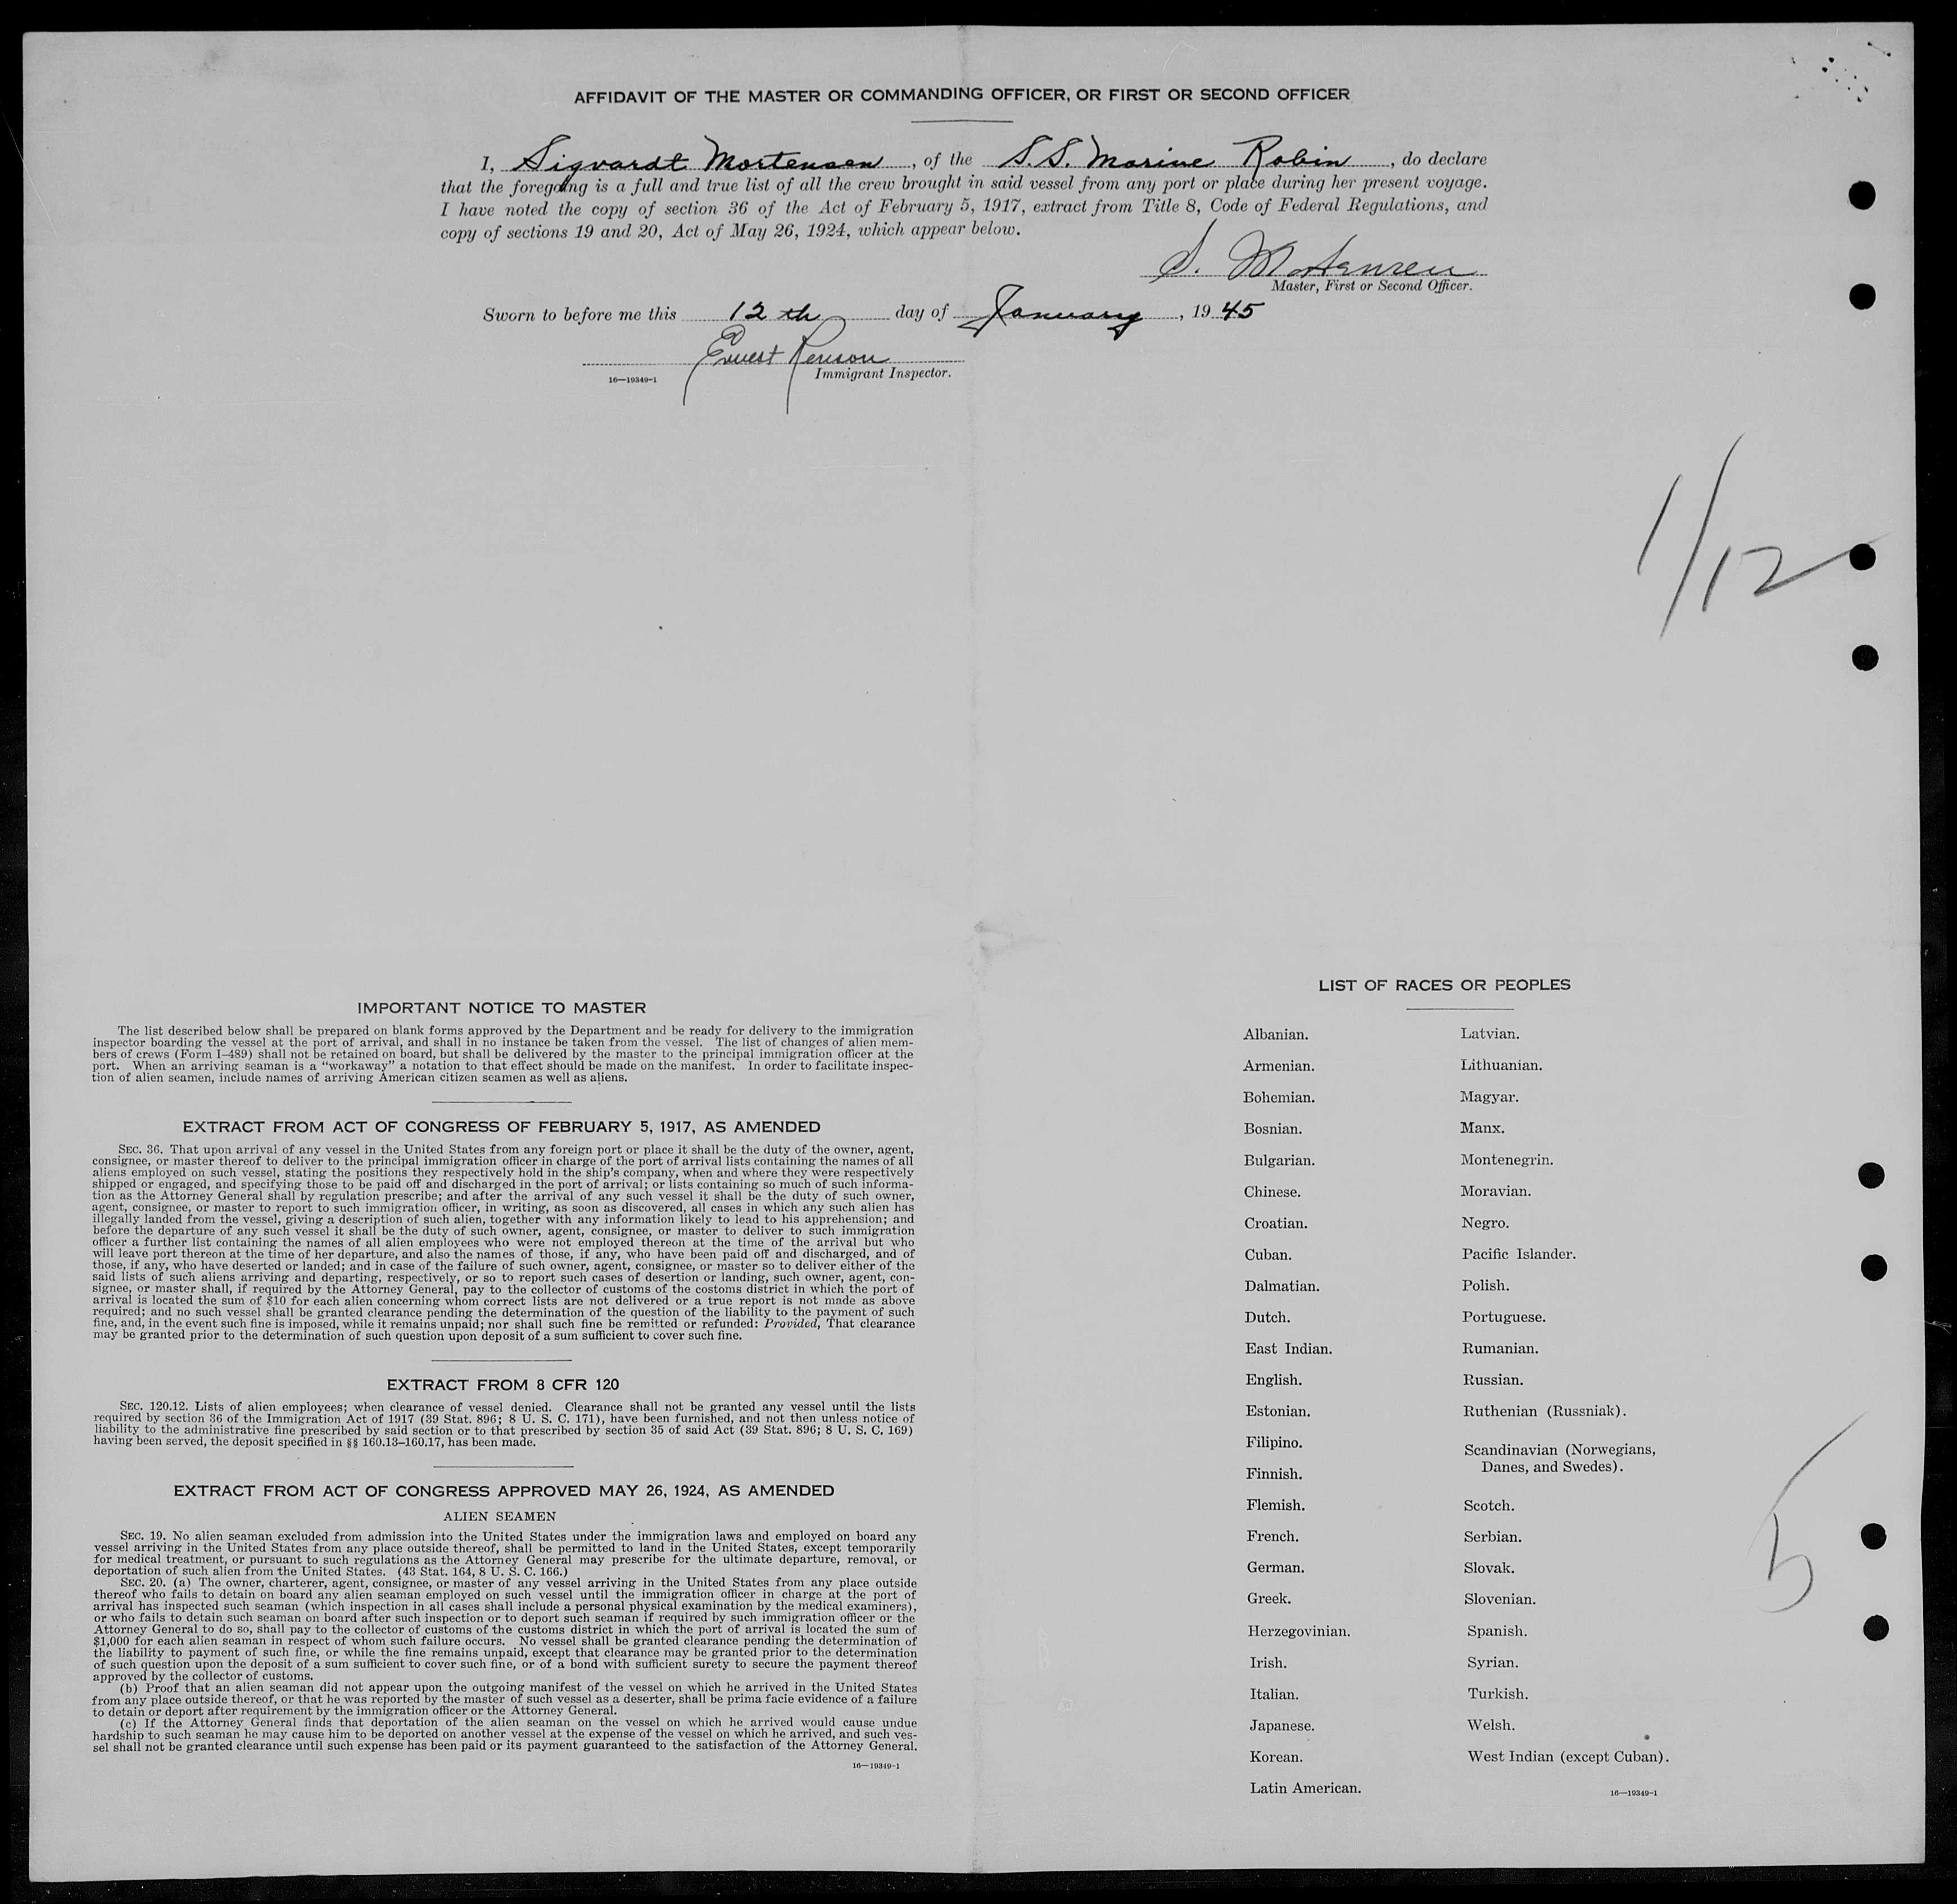 AFFIDAVIT OF THE MASTER OR COMMANDING OFFICER, OR FIRST OR SECOND OFFICER
I, Sigvardt Mortensen, of the S.S. Marine Robin, do declare
that the foregoing is a full and true list of all the crew brought in said vessel from any port or place during her present voyage.
I have noted the copy of section 36 of the Act of February 5, 1917, extract from Title 8, Code of Federal Regulations, and
copy of sections 19 and 20, Act of May 26, 1924, which appear below.
S. Mortensen
Master, First or Second Officer.
Sworn to before me this 12th day of January, 1945
Ernest
16—19349-1 Immigrant Inspector.
1/12
IMPORTANT NOTICE TO MASTER
The list described below shall be prepared on blank forms approved by the Department and be ready for delivery to the immigration
inspector boarding the vessel at the port of arrival, and shall in no instance be taken from the vessel. The list of changes of alien mem-
bers of crews (Form I-489) shall not be retained on board, but shall be delivered by the master to the principal immigration officer at the
port. When an arriving seaman is a "workaway" a notation to that effect should be made on the manifest. In order to facilitate inspec-
tion of alien seamen, include names of arriving American citizen seamen as well as aliens.
EXTRACT FROM ACT OF CONGRESS OF FEBRUARY 5, 1917, AS AMENDED
SEC. 36. That upon arrival of any vessel in the United States from any foreign port or place it shall be the duty of the owner, agent,
consignee, or master thereof to deliver to the principal immigration officer in charge of the port of arrival lists containing the names of all
aliens employed on such vessel, stating the positions they respectively hold in the ship's company, when and where they were respectively
shipped or engaged, and specifying those to be paid off and discharged in the port of arrival; or lists containing so much of such informa-
tion as the Attorney General shall by regulation prescribe; and after the arrival of any such vessel it shall be the duty of such owner,
agent, consignee, or master to report to such immigration officer, in writing, as soon as discovered, all cases in which any such alien has
illegally landed from the vessel, giving a description of such alien, together with any information likely to lead to his apprehension; and
before the departure of any such vessel it shall be the duty of such owner, agent, consignee, or master to deliver to such immigration
officer a further list containing the names of all alien employees who were not employed thereon at the time of the arrival but who
will leave port thereon at the time of her departure, and also the names of those, if any, who have been paid off and discharged, and of
those, if any, who have deserted or landed; and in case of the failure of such owner, agent, consignee, or master so to deliver either of the
said lists of such aliens arriving and departing, respectively, or so to report such cases of desertion or landing, such owner, agent, con-
signee, or master shall, if required by the Attorney General, pay to the collector of customs of the costoms district in which the port of
arrival is located the sum of $10 for each alien concerning whom correct lists are not delivered or a true report is not made as above
required; and no such vessel shall be granted clearance pending the determination of the question of the liability to the payment of such
fine, and, in the event such fine is imposed, while it remains unpaid; nor shall such fine be remitted or refunded: Provided, That clearance
may be granted prior to the determination of such question upon deposit of a sum sufficient to cover such fine.
EXTRACT FROM 8 CFR 120
SEC. 120.12. Lists of alien employees; when clearance of vessel denied. Clearance shall not be granted any vessel until the lists
required by section 36 of the Immigration Act of 1917 (39 Stat. 896; 8 U. S. C. 171), have been furnished, and not then unless notice of
liability to the administrative fine prescribed by said section or to that prescribed by section 35 of said Act (39 Stat. 896; 8 U. S. C. 169)
having been served, the deposit specified in §§ 160.13-160.17, has been made.
EXTRACT FROM ACT OF CONGRESS APPROVED MAY 26, 1924, AS AMENDED
ALIEN SEAMEN
SEC. 19. No alien seaman excluded from admission into the United States under the immigration laws and employed on board any
vessel arriving in the United States from any place outside thereof, shall be permitted to land in the United States, except temporarily
for medical treatment, or pursuant to such regulations as the Attorney General may prescribe for the ultimate departure, removal, or
deportation of such alien from the United States. (43 Stat. 164, 8 U. S. C. 166.)
SEC. 20. (a) The owner, charterer, agent, consignee, or master of any vessel arriving in the United States from any place outside
thereof who fails to detain on board any alien seaman employed on such vessel until the immigration officer in charge at the port of
arrival has inspected such seaman (which inspection in all cases shall include a personal physical examination by the medical examiners),
or who fails to detain such seaman on board after such inspection or to deport such seaman if required by such immigration officer or the
Attorney General to do so, shall pay to the collector of customs of the customs district in which the port of arrival is located the sum of
$1,000 for each alien seaman in respect of whom such failure occurs. No vessel shall be granted clearance pending the determination of
the liability to payment of such fine, or while the fine remains unpaid, except that clearance may be granted prior to the determination
of such question upon the deposit of a sum sufficient to cover such fine, or of a bond with sufficient surety to secure the payment thereof
approved by the collector of customs.
(b) Proof that an alien seaman did not appear upon the outgoing manifest of the vessel on which he arrived in the United States
from any place outside thereof, or that he was reported by the master of such vessel as a deserter, shall be prima facie evidence of a failure
to detain or deport after requirement by the immigration officer or the Attorney General.
(c) If the Attorney General finds that deportation of the alien seaman on the vessel on which he arrived would cause undue
hardship to such seaman he may cause him to be deported on another vessel at the expense of the vessel on which he arrived, and such ves-
sel shall not be granted clearance until such expense has been paid or its payment guaranteed to the satisfaction of the Attorney General.
16—19349-1
LIST OF RACES OR PEOPLES
Albanian.
Armenian.
Bohemian.
Bosnian.
Bulgarian.
Chinese.
Croatian.
Cuban.
Dalmatian.
Dutch.
East Indian.
English.
Estonian.
Filipino.
Finnish.
Flemish.
French.
German.
Greek.
Herzegovinian.
Irish.
Italian.
Japanese.
Korean.
Latin American.
Latvian.
Lithuanian.
Magyar.
Manx.
Montenegrin.
Moravian.
Negro.
Pacific Islander.
Polish.
Portuguese.
Rumanian.
Russian.
Ruthenian (Russniak).
Scandinavian (Norwegians,
Danes, and Swedes).
Scotch.
Serbian.
Slovak.
Slovenian.
Spanish.
Syrian.
Turkish.
Welsh.
West Indian (except Cuban).
16—19349-1
5